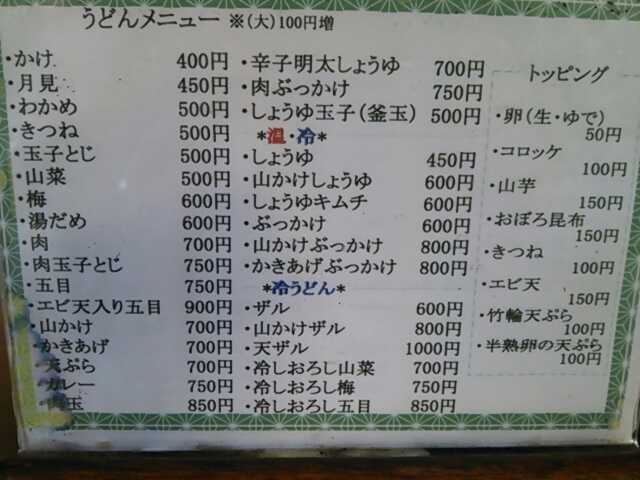 うどんメニュー ※(大)100円増
・かけ 400円
・月見 450円
・わかめ 500円
・きつね 500円
・玉子とじ 500円
・山菜 500円
・梅 600円
・湯だめ 600円
・肉 700円
・肉玉子とじ 750円
・五目 750円
・エビ天入り五目 900円
・山かけ 700円
・かきあげ 700円
天ぷら 700円
カレー 750円
玉 850円
・辛子明太しょうゆ 700円
・肉ぶっかけ 750円
・しょうゆ玉子(釜玉) 500円
*温・冷*
・しょうゆ 450円
・山かけしょうゆ 600円
・しょうゆキムチ 600円
・ぶっかけ 600円
・山かけぶっかけ 800円
・かきあげぶっかけ 800円
*冷うどん*
・ザル 600円
・山かけザル 800円
・天ザル 1000円
・冷しおろし山菜 700円
・冷しおろし梅 750円
・冷しおろし五目 850円
トッピング
・卵(生・ゆで)
50円
・コロッケ
100円
・山芋
150円
・おぼろ昆布
150円
・きつね
100円
・エビ天
150円
・竹輪天ぷら
100円
・半熟卵の天ぷら
100円